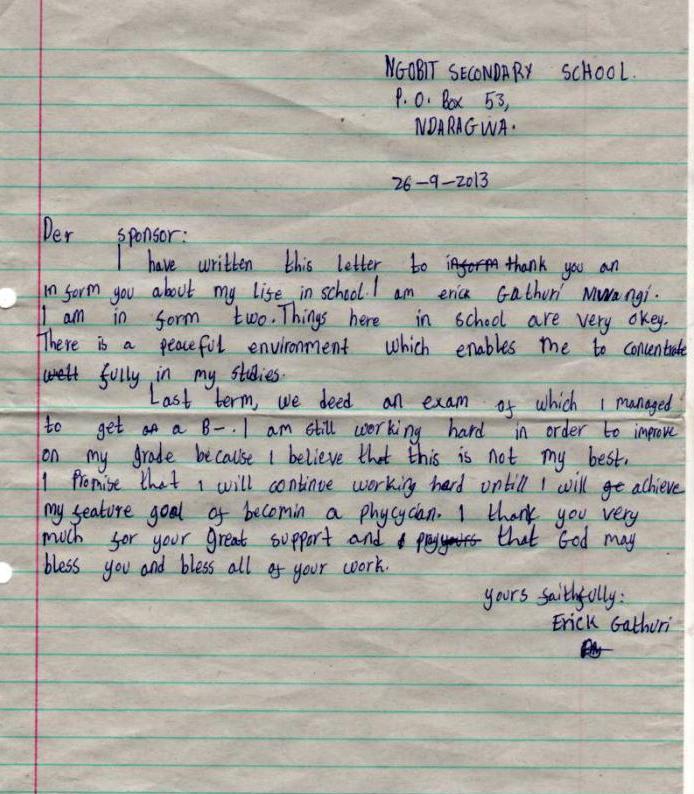 NGOBIT SECONDARY SCHOOL.
P. O. Box 53,
NDARAGWA.
26-9-2013
Der sponsor:
I have written this letter to inform thank you an
inform you about my life in school. I am erick Gathuri Mwangi.
I am in form two. Things here in school are very okey.
There is a peaceful environment which enables me to concentrate
well fully in my studies.
Last term, we deed an exam of which I managed
to get an a B-. I am still working hard in order to improve
on my grade because I believe that this is not my best.
I Promise that I will continue working hard untill I will ge achieve
my feature goal of becomin a phycycian. I thank you very
much for your great support and I that God may
bless you and bless all of your work.
yours faithfully:
Erick Gathuri